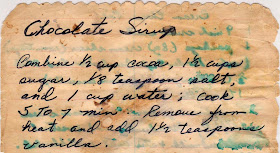 Chocolate Sirup
Combine ½ cup cocoa, 1½ cups
sugar, ⅛ teaspoon salt,
and 1 cup water; cook
5 to 7 min. Remove from
heat and add 1½ teaspoons
vanilla.